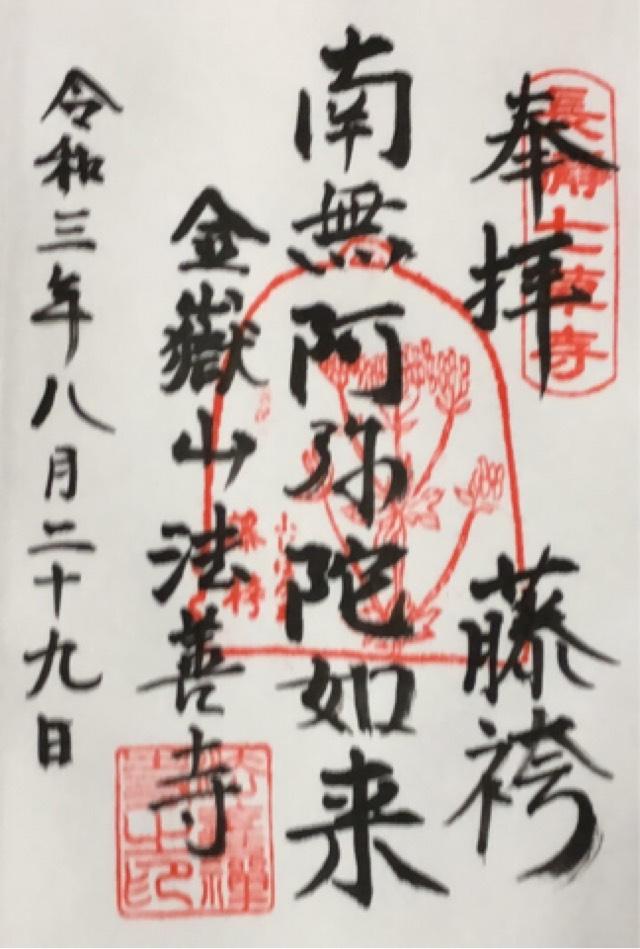 奉拝
藤袴
長瀞七草寺
南無阿弥陀如来
金嶽山法善寺
令和三年八月二十九日